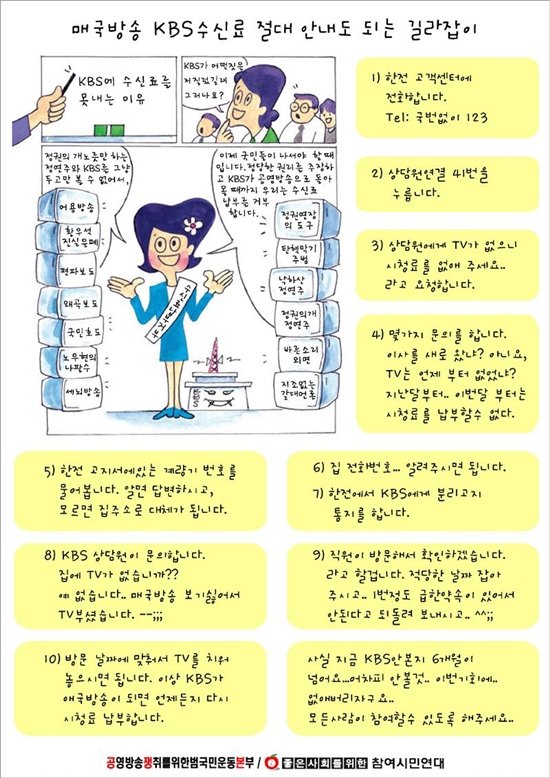 매국방송 KBS수신료 절대 안내도 되는 길라잡이
KBS에 수신료를
못내는 이유
KBS가 어떤짓을
저질렀길래
그러나요?
정권의 개노릇만 하는
정연주와 KBS를 그냥
두고만 볼 수 없어서,
이제 국민들이 나서야 할 때
입니다. 정당한 권리를 주장하
고 KBS가 공영방송으로 돌아
올 때까지 우리는 수신료
납부를 거부
합니다.
어용방송
황우석
진실은폐
편파보도
왜곡보도
국민호도
노무현의
나팔수
세뇌방송
정권연장
의 도구
탄핵막기
주범
낙하산
정연주
정권의개
정연주
바른소리
외면
지조없는
갈대언론
수신료납부거부
KBS
1) 한전 고객센터에
전화합니다.
Tel: 국번없이 123
2) 상담원연결 41번을
누릅니다.
3) 상담원에게 TV가 없으니
시청료를 없애 주세요..
라고 요청합니다.
4) 몇가지 문의를 합니다.
이사를 새로 왔냐? 아니요,
TV는 언제 부터 없었냐?
지난달부터.. 이번달 부터는
시청료를 납부할수 없다.
5) 한전 고지서에있는 계량기 번호를
물어봅니다. 알면 답변하시고,
모르면 집주소로 대체가 됩니다.
6) 집 전화번호... 알려주시면 됩니다.
7) 한전에서 KBS에게 분리고지
통지를 합니다.
8) KBS 상담원이 문의합니다.
집에 TV가 없습니까??
예 없습니다.. 매국방송 보기싫어서
TV부셨습니다. --;;;
9) 직원이 방문해서 확인하겠습니다.
라고 할겁니다. 적당한 날짜 잡아
주시고.. 1번정도 급한약속이 있어서
안된다고 되돌려 보내시고.. ^^;;
10) 방문 날짜에 맞춰서 TV를 치워
놓으시면 됩니다. 이상 KBS가
애국방송이 되면 언제든지 다시
시청료 납부합니다.
사실 지금 KBS안본지 6개월이
넘어요...어차피 안볼것.. 이번기회에..
없애버리자구요..
모든사람이 참여할수 있도록 해주세요..
공영방송쟁취를위한범국민운동본부 / 좋은사회를위한 참여시민연대